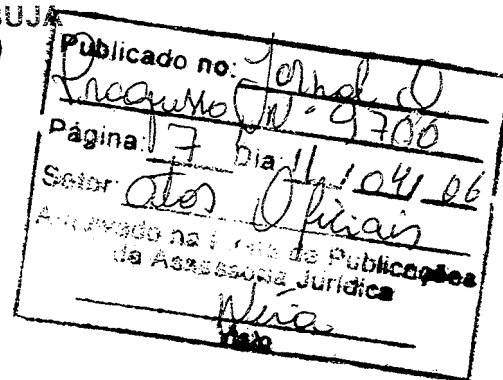 BUJA
Publicado no: Jornal O
Progresso Nº 9700
Página: 17 Dia: 11 / 04 / 06
Setor: Atos Oficiais
Arquivado na Pasta de Publicações
da Assessoria Jurídica
Visto